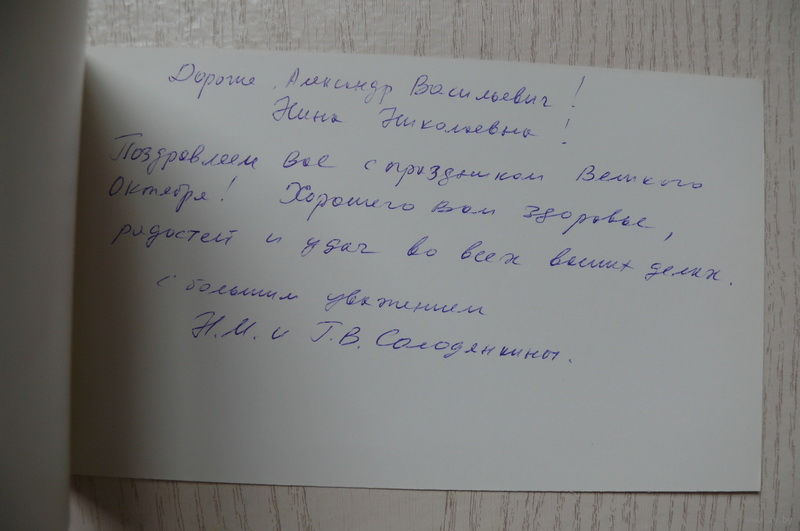 Дорогие Александр Васильевич!
Нина Николаевна!
Поздравляем Вас с праздником Великого
Октября! Хорошего Вам здоровья,
радостей и удач во всех ваших делах.
С большим уважением
Н.М. и Г.В. Солодянкины.